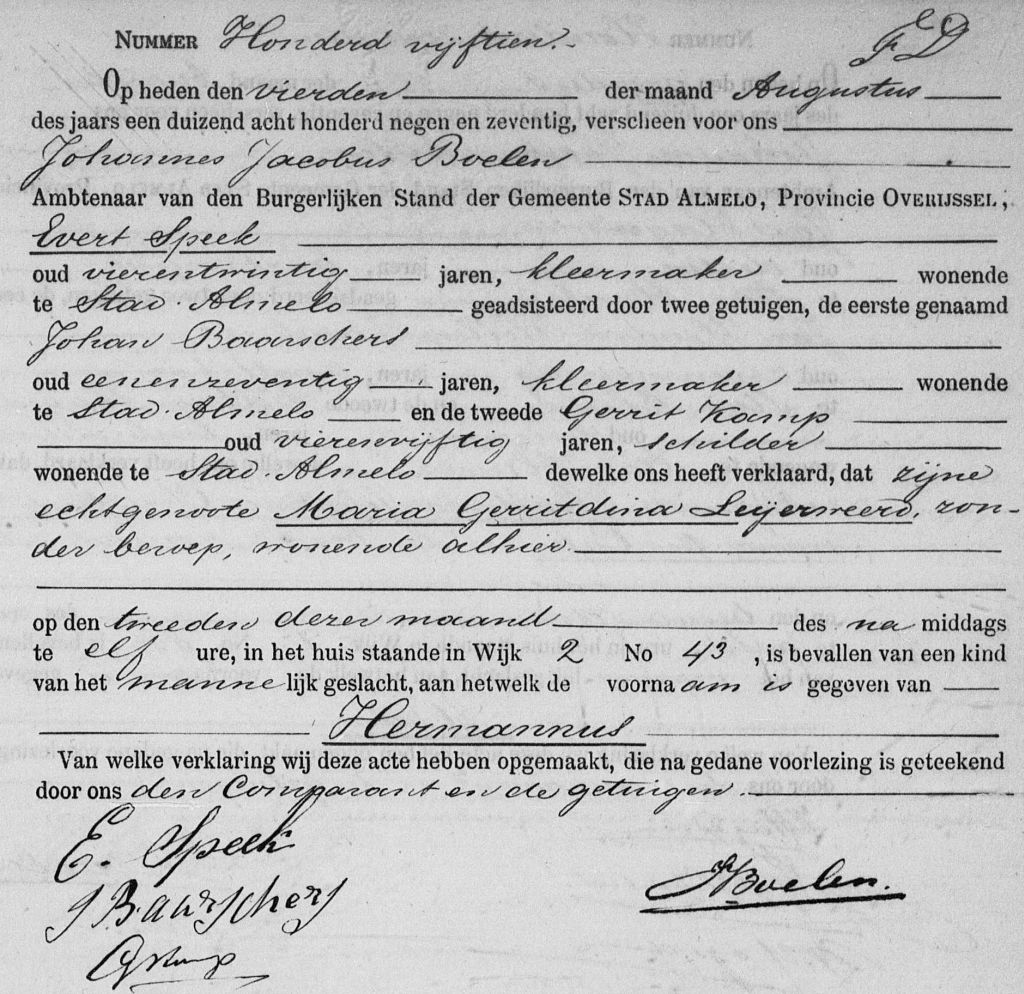 NUMMER Honderd vijftien.
Op heden den vierden der maand Augustus
des jaars een duizend acht honderd negen en zeventig, verscheen voor ons
Johannes Jacobus Boelen
Ambtenaar van den Burgerlijken Stand der Gemeente STAD ALMELO, Provincie OVERIJSSEL,
Evert Speek
oud vierentwintig jaren, kleermaker wonende
te Stad Almelo geadsisteerd door twee getuigen, de eerste genaamd
Johan Baarschers
oud eenenzeventig jaren, kleermaker wonende
te Stad Almelo en de tweede Gerrit Kamp
oud vierenvijftig jaren, schilder
wonende te Stad Almelo dewelke ons heeft verklaard, dat zijne
echtgenoote Maria Gerritdina Leijerweerd, zon-
der beroep, wonende alhier
op den tweeden dezer maand des na middags
te elf ure, in het huis staande in Wijk 2 No 43, is bevallen van een kind
van het manne lijk geslacht, aan hetwelk de voornaam is gegeven van
Hermannus
Van welke verklaring wij deze acte hebben opgemaakt, die na gedane voorlezing is geteekend
door ons den Comparant en de getuigen.
E. Speek
J Baarschers
JBoelen.
GKamp